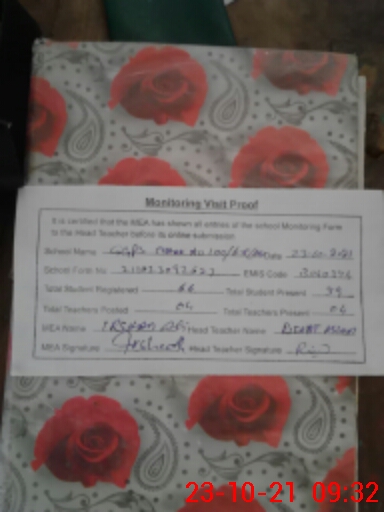 Monitoring Visit Proof
It is certified that the MEA has shown all entries of the school Monitoring Form
to the Head Teacher before its online submission
School Name Date 23-10-2021
School Form No EMIS Code
Total Student Registered 66 Total Student Present 39
Total Teachers Posted 04 Total Teachers Present 04
MEA Name Head Teacher Name
MEA Signature Head Teacher Signature
23-10-21 09:32